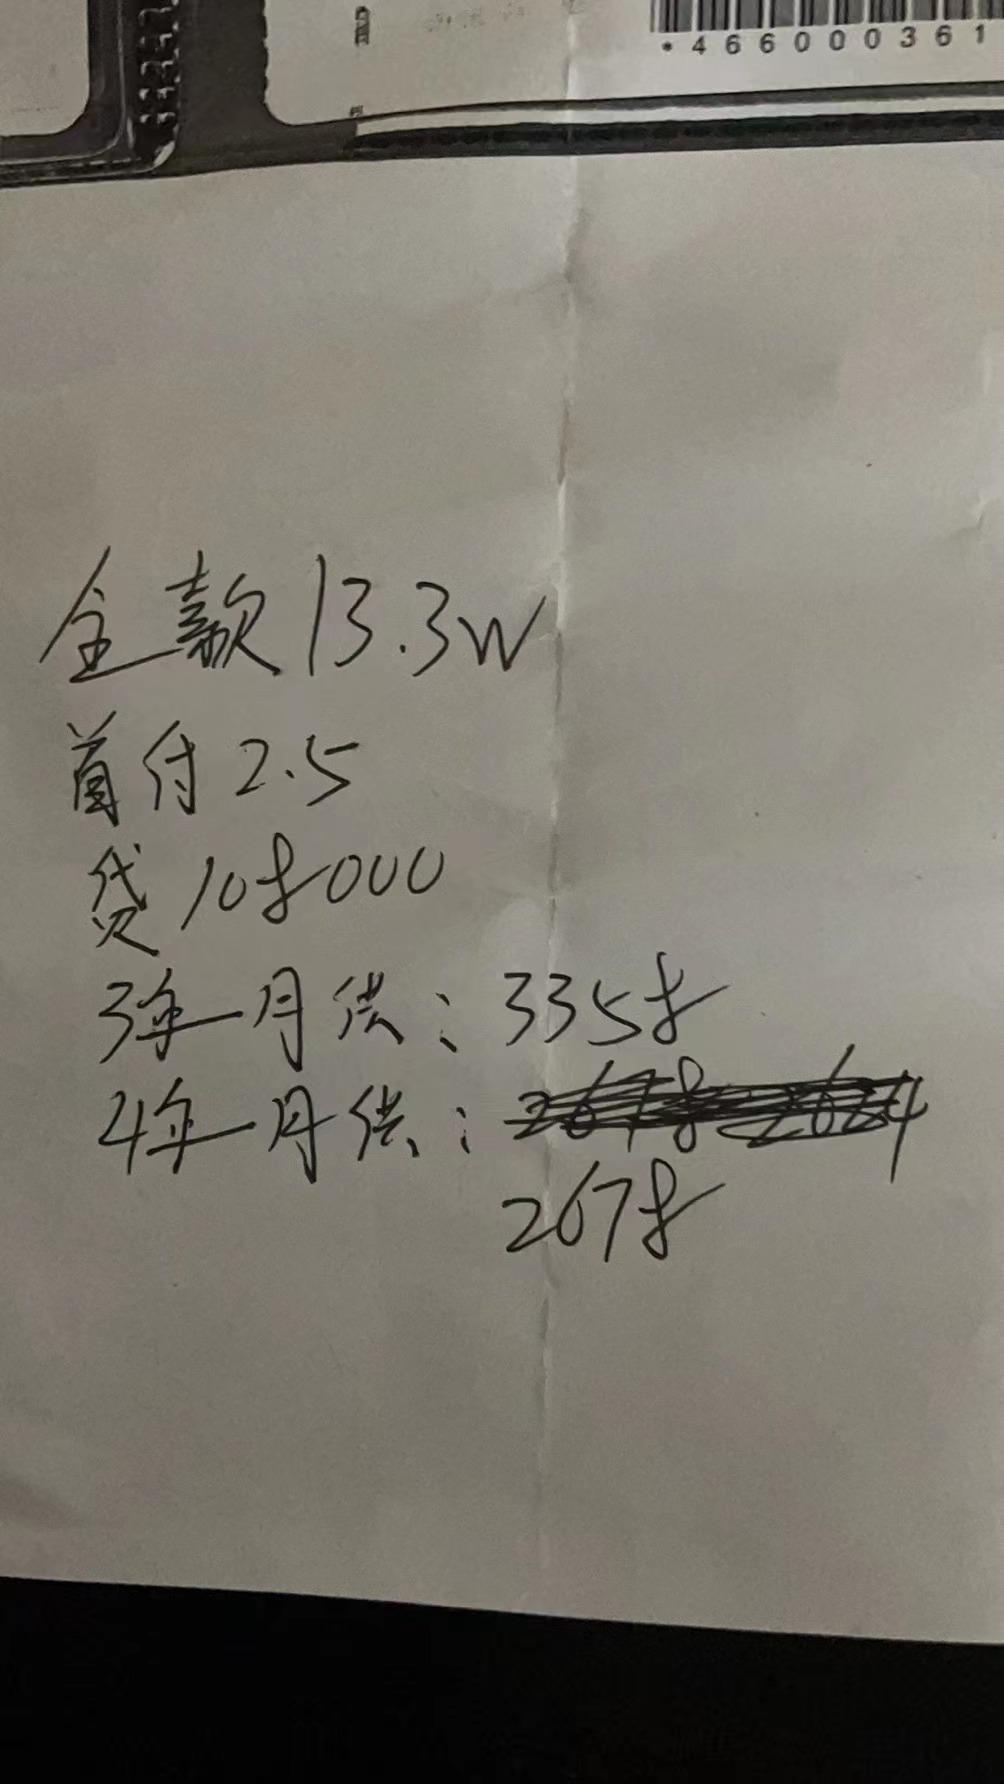 *466000361
全款13.3W
首付2.5
贷108000
3年月供：3358
4年月供：
2678